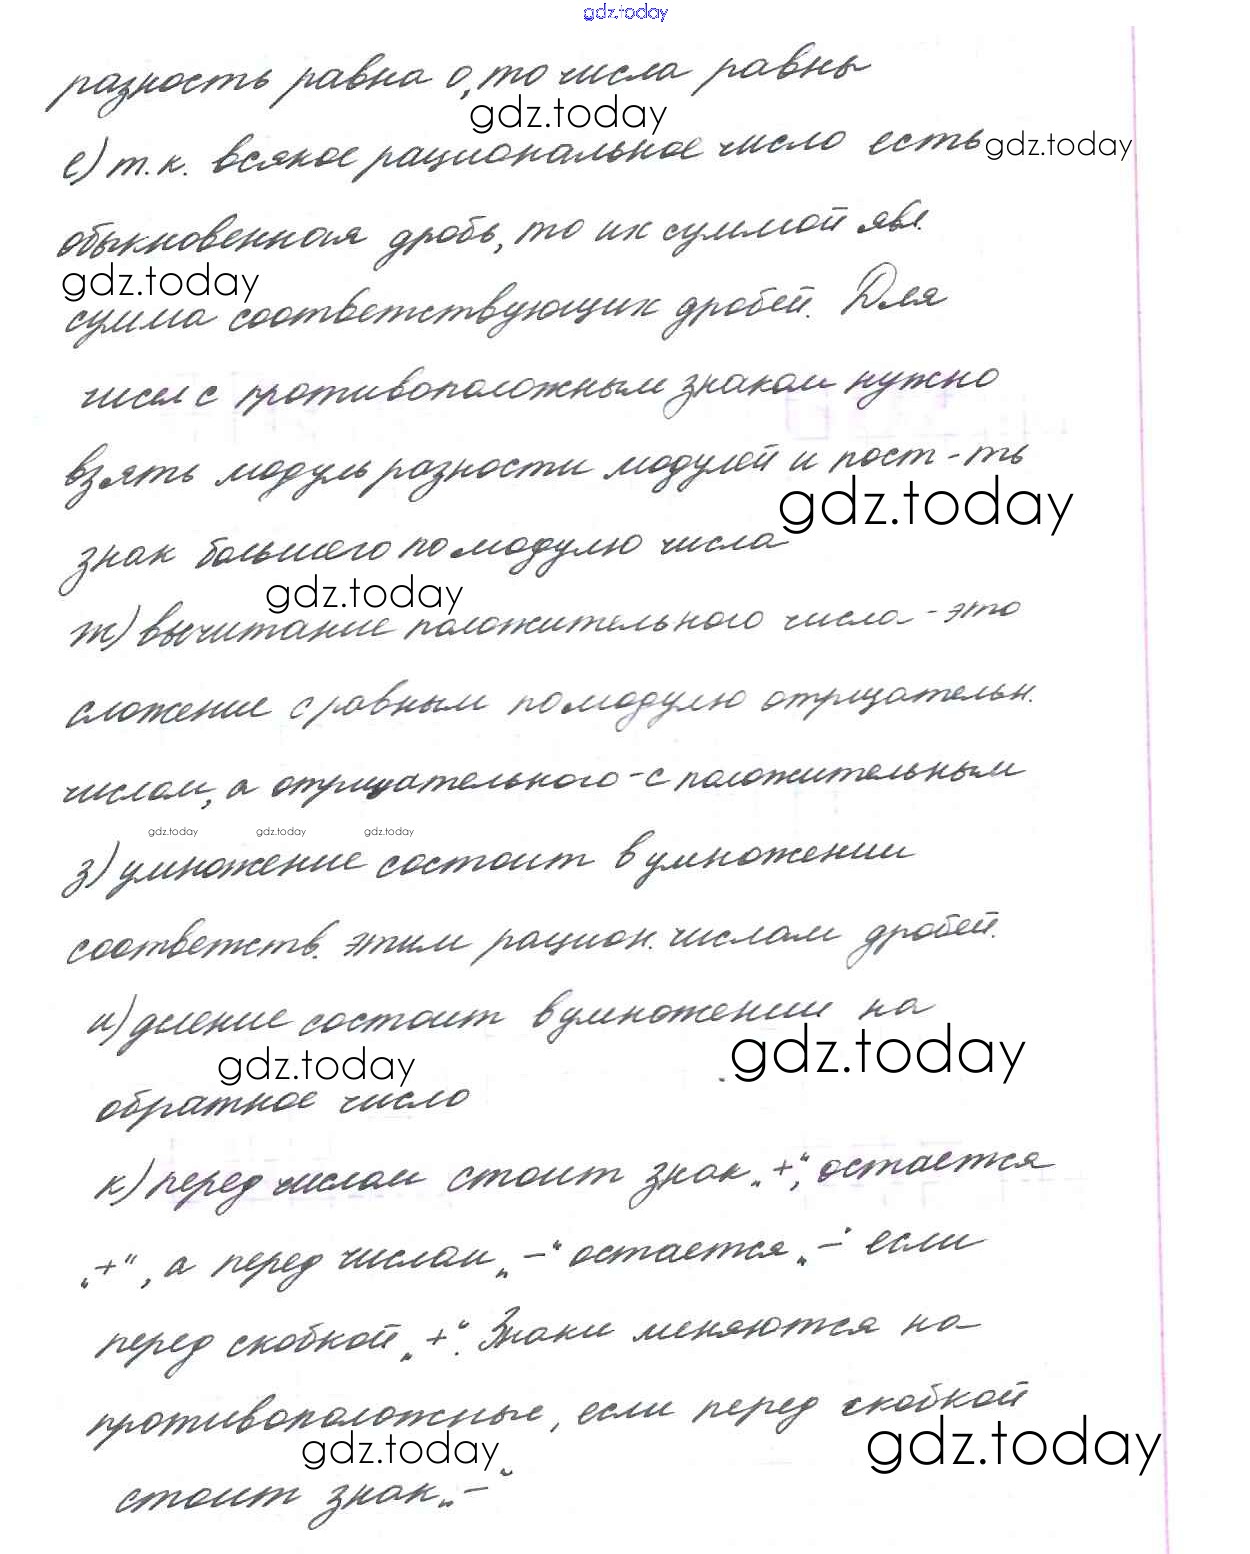 gdz.today
разность равна 0, то числа равны
gdz.today
е) т.к. всякое рациональное число есть
gdz.today
обыкновенная дробь, то их суммой явл.
gdz.today
сумма соответствующих дробей. Для
чисел с противоположным знаком нужно
взять модуль разности модулей и пост-ть
gdz.today
знак большего по модулю числа
gdz.today
ж) вычитание положительного числа - это
сложение с равным по модулю отрицательн.
числом, а отрицательного - с положительным
gdz.today gdz.today gdz.today
з) умножение состоит в умножении
соответств. этим рацион. числам дробей.
и) деление состоит в умножении на
gdz.today gdz.today
обратное число
к) перед числом стоит знак „+“, остается
„+“, а перед числом „–“ остается „–“ если
перед скобкой „+“. Знаки меняются на
противоположные, если перед скобкой
gdz.today gdz.today
стоит знак „–“